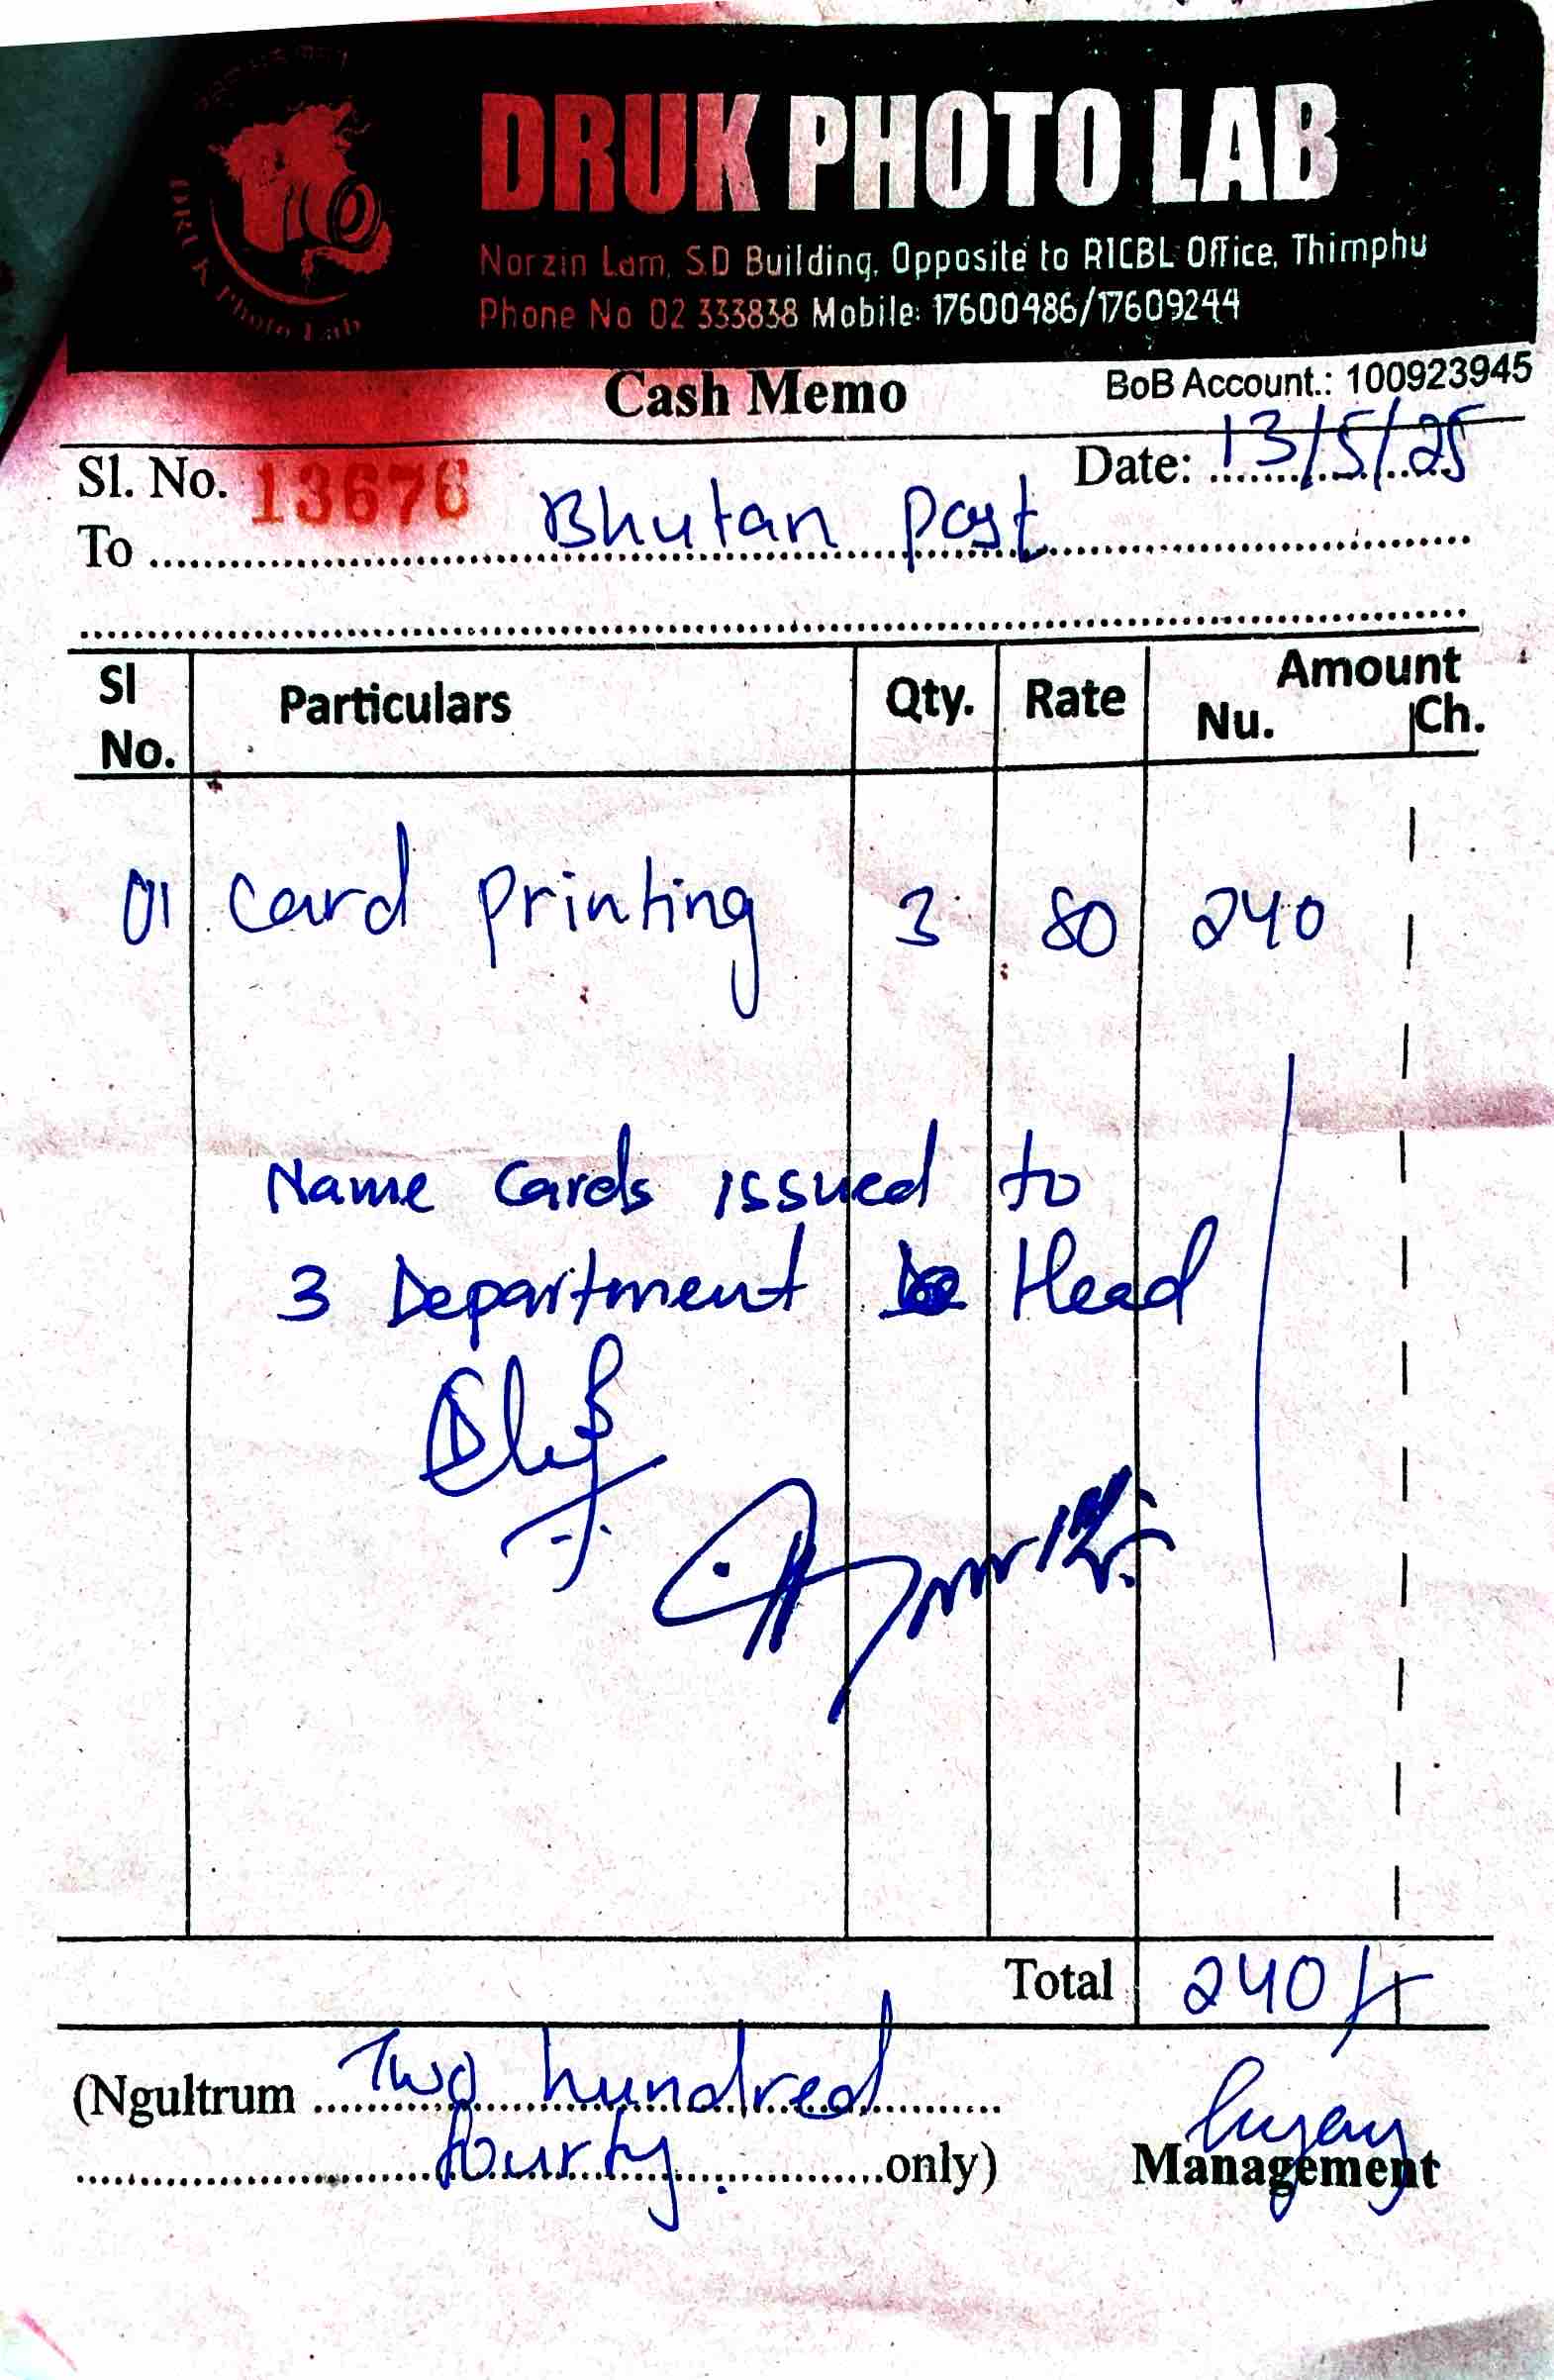 DRUK PHOTO LAB
Norzin Lam, S.D Building, Opposite to RICBL Office, Thimphu
Phone No 02 333838 Mobile: 17600486/17609244
DRUK Photo Lab
Cash Memo
BoB Account.: 100923945
Sl. No. 13676
Date: 13/5/25
To Bhutan Post
Sl No. Particulars Qty. Rate Amount Nu. Ch.
01 Card Printing 3 80 240
Name Cards issued to
3 Department Head
Total 240/-
(Ngultrum Two hundred
fourty. only)
Management